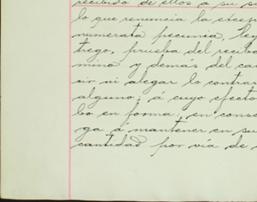 recibido de ellos a su sa
lo que renuncia la
numerata pecunia, ley
trego, prueba del recibo
mino y demás del ca
sin ni alegar lo contra
alguno; á cuyo efecto
bo en forma; en conse
ga á mantener en su
cantidad por via de